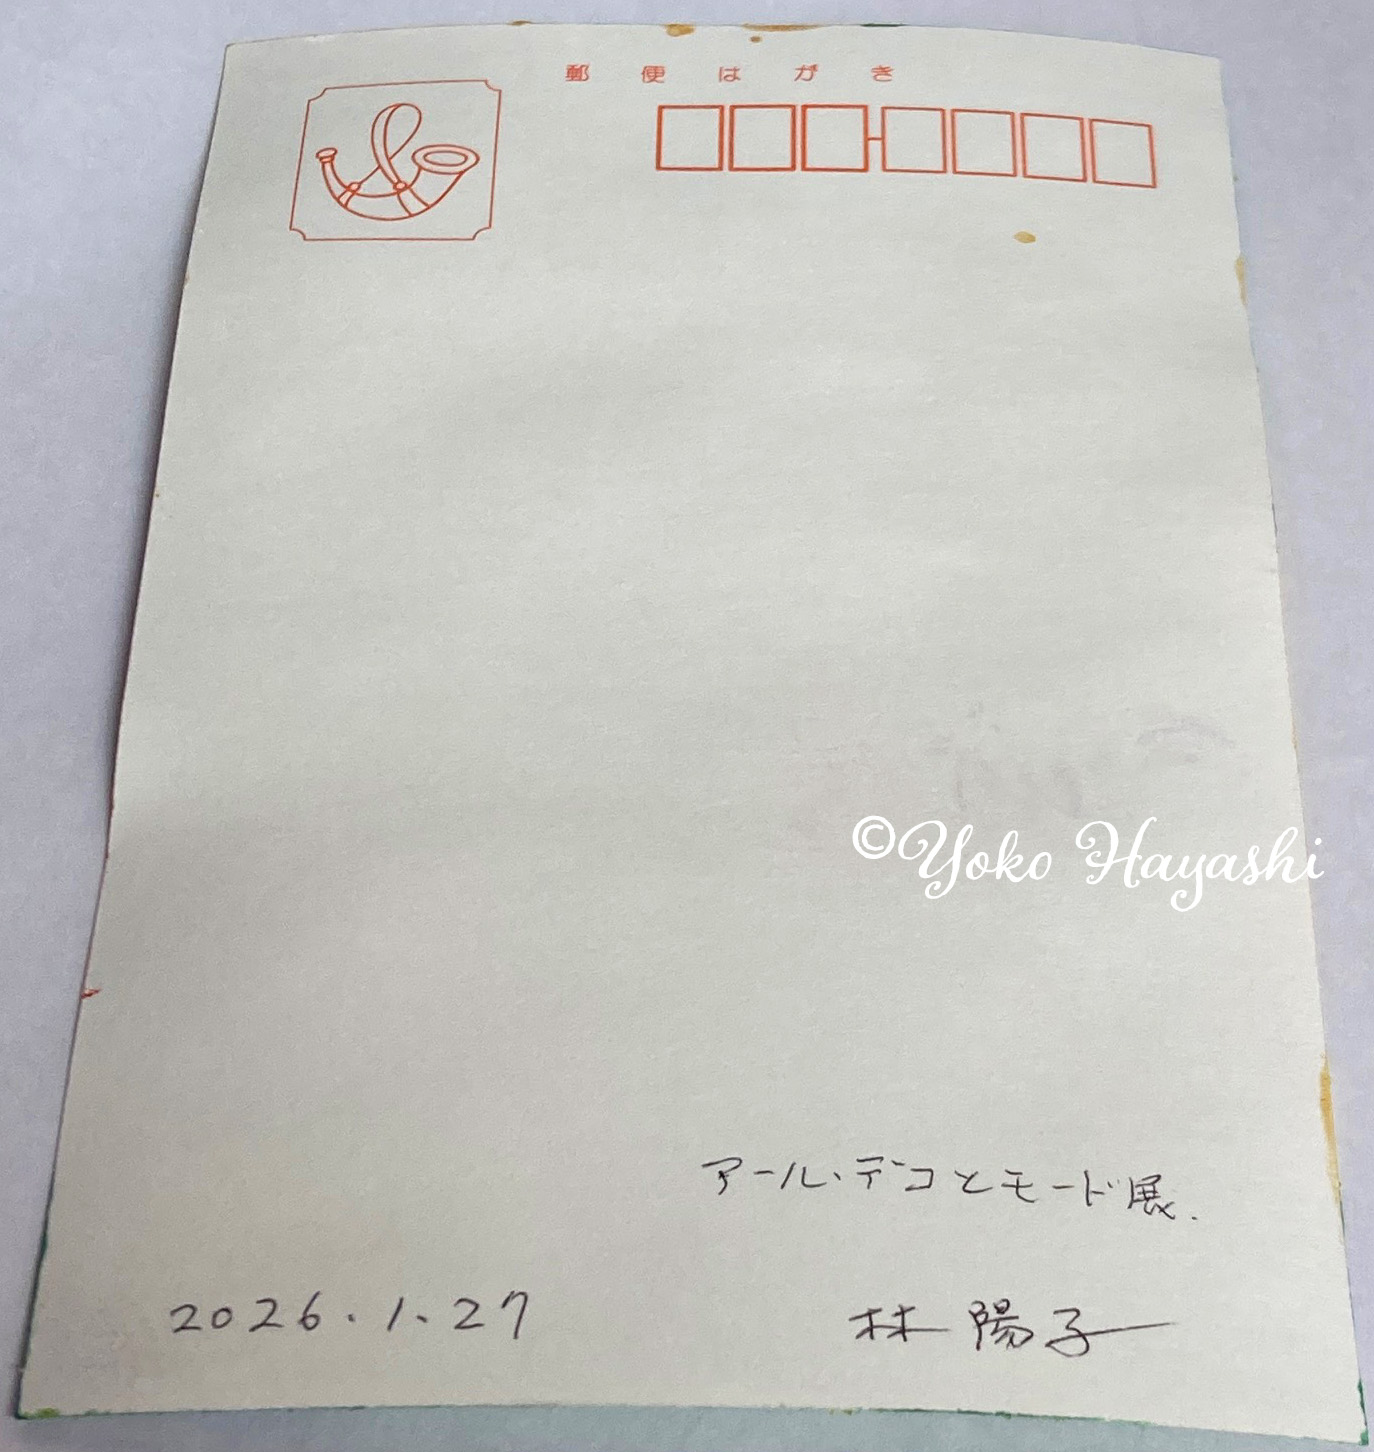 郵便はがき
©Yoko Hayashi
アール・デコとモード展.
2026.1.27
林陽子